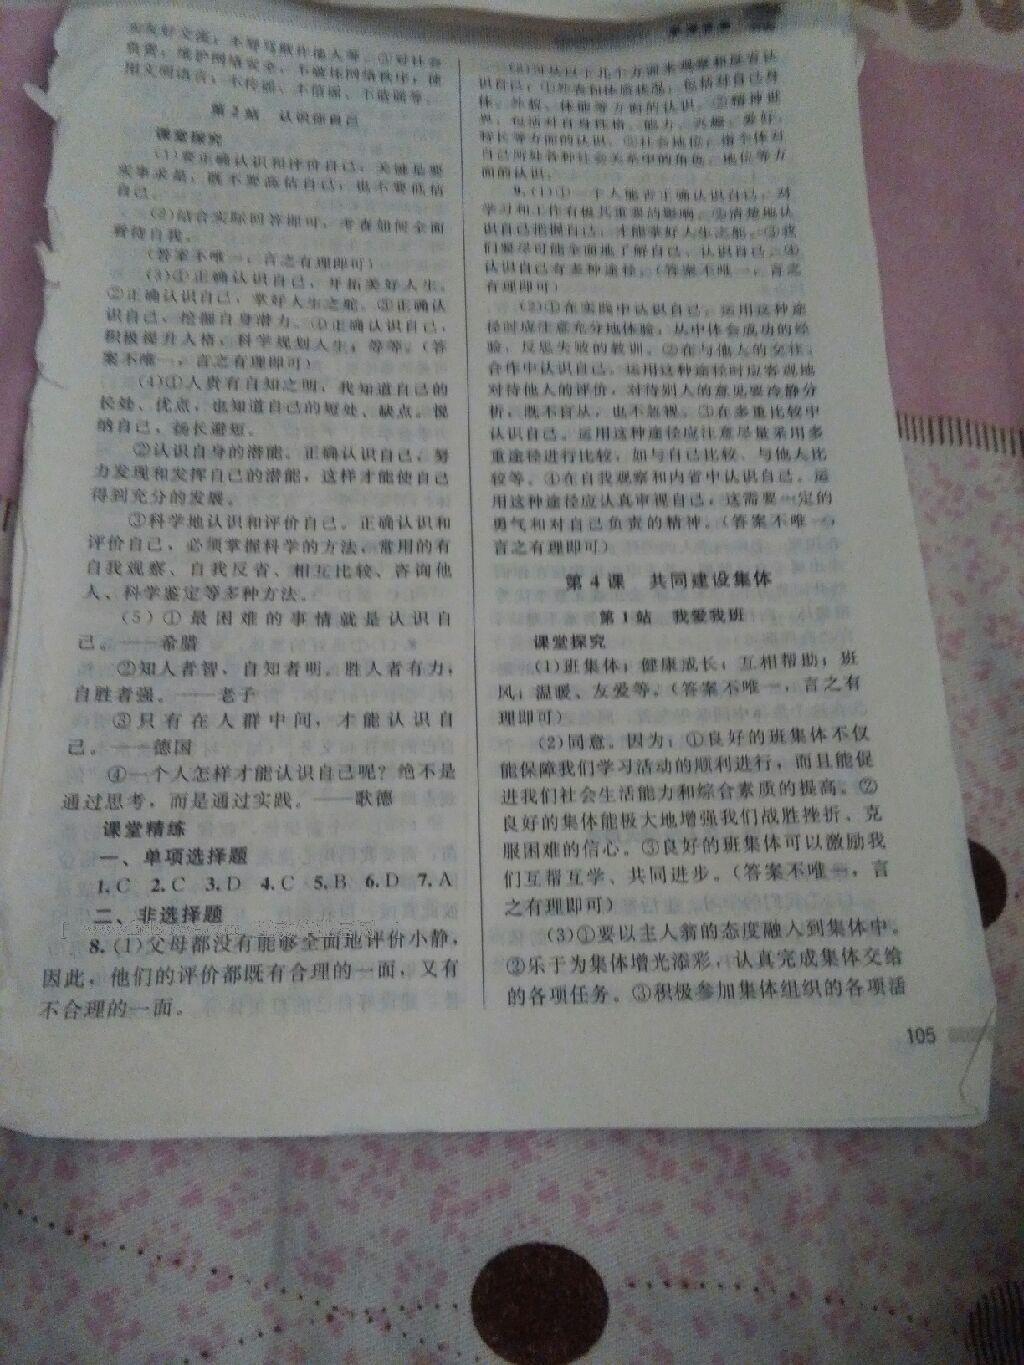 实友好交流；不辱骂欺诈他人等。③对社会
负责：维护网络安全，不破坏网络秩序；使
用文明语言；不传谣、不信谣、不造谣等。
第2站 认识你自己
课堂探究
(1)要正确认识和评价自己，关键是要
实事求是，既不要高估自己，也不要低估
自己。
(2)结合实际回答即可，考查如何全面
看待自我。
(答案不唯一，言之有理即可)
(3)①正确认识自己，开拓美好人生。
②正确认识自己，掌好人生之舵。③正确认
识自己，挖掘自身潜力。④正确认识自己，
积极提升人格，科学规划人生；等等。(答
案不唯一，言之有理即可)
(4)①人贵有自知之明，我知道自己的
长处、优点，也知道自己的短处、缺点。悦
纳自己，扬长避短。
②认识自身的潜能。正确认识自己，努
力发现和发挥自己的潜能，这样才能使自己
得到充分的发展。
③科学地认识和评价自己。正确认识和
评价自己，必须掌握科学的方法，常用的有
自我观察、自我反省、相互比较、咨询他
人、科学鉴定等多种方法。
(5)①最困难的事情就是认识自
己。——希腊
②知人者智，自知者明。胜人者有力，
自胜者强。——老子
③只有在人群中间，才能认识自
己。——德国
④一个人怎样才能认识自己呢？绝不是
通过思考，而是通过实践。——歌德
课堂精练
一、单项选择题
1.C 2.C 3.D 4.C 5.B 6.D 7.A
二、非选择题
8.(1)父母都没有能够全面地评价小静，
因此，他们的评价都既有合理的一面，又有
不合理的一面。
(2)可从以下几个方面来观察和原有认
识自己：①外表和体质状况：包括对自己身
体、外貌、体能等方面的认识。②精神世
界，包括对自身性格、能力、兴趣、爱好、
特长等方面的认识。③社会地位：指个体对
自己所处各种社会关系中的角色、地位等方
面的认识。
9.(1)①一个人能否正确认识自己，对
学习和工作有极其重要的影响。②清楚地认
识自己把握自己，才能掌好人生之舵。③我
们要尽可能全面地了解自己、认识自己。④
认识自己有多种途径。(答案不唯一，言之
有理即可)
(2)①在实践中认识自己。运用这种途
径时应注意充分地体验，从中体会成功的经
验，反思失败的教训。②在与他人的交往、
合作中认识自己。运用这种途径时应客观地
对待他人的评价，对待别人的意见要冷静分
析，既不盲从，也不忽视。③在多重比较中
认识自己。运用这种途径应注意尽量采用多
重途径进行比较，如与自己比较、与他人比
较等。④在自我观察和内省中认识自己。运
用这种途径应认真审视自己，这需要一定的
勇气和对自己负责的精神。(答案不唯一，
言之有理即可)
第4课 共同建设集体
第1站 我爱我班
课堂探究
(1)班集体：健康成长；互相帮助；班
风：温暖、友爱等。(答案不唯一，言之有
理即可)
(2)同意。因为：①良好的班集体不仅
能保障我们学习活动的顺利进行，而且能促
进我们社会生活能力和综合素质的提高。②
良好的集体能极大地增强我们战胜挫折、克
服困难的信心。③良好的班集体可以激励我
们互帮互学、共同进步。(答案不唯一，言
之有理即可)
(3)①要以主人翁的态度融入到集体中。
②乐于为集体增光添彩，认真完成集体交给
的各项任务。③积极参加集体组织的各项活
105